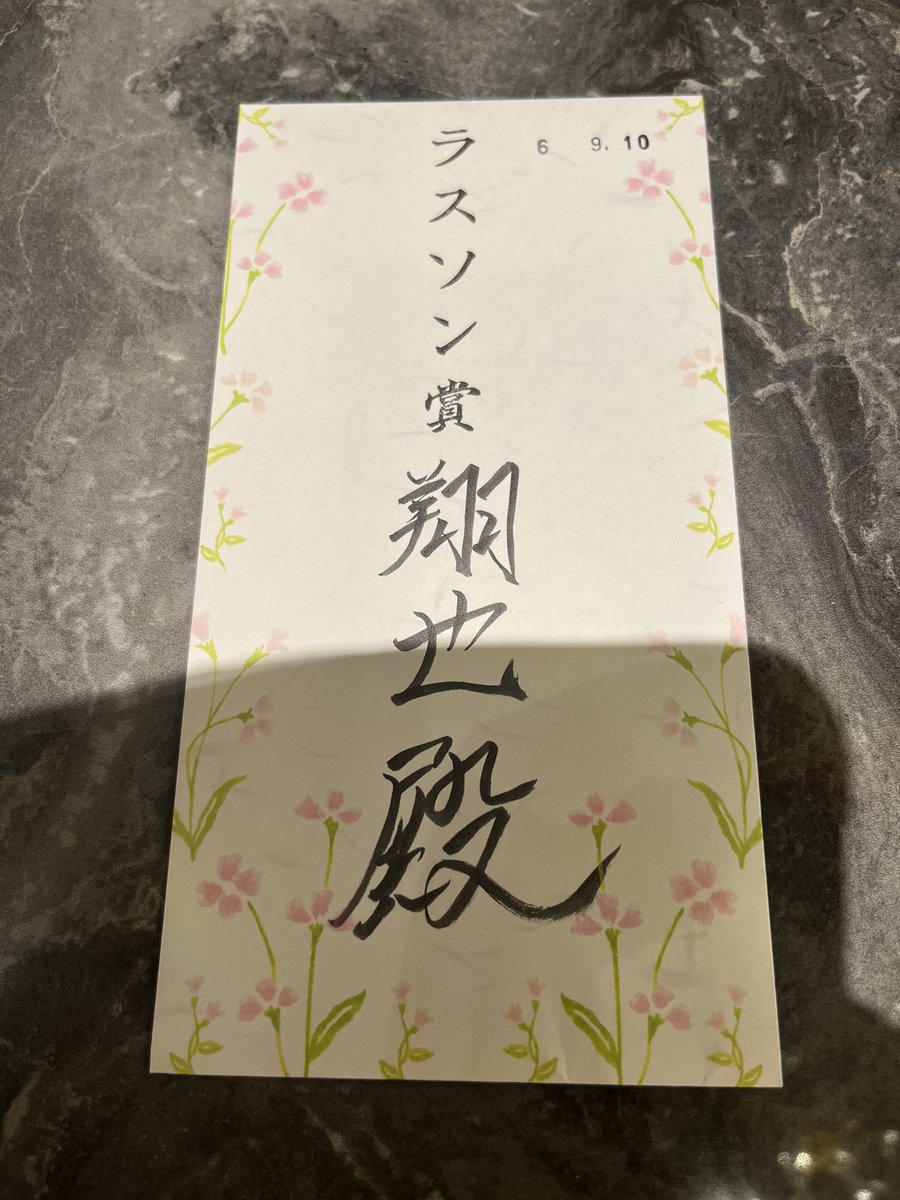 6 9. 10
ラスソン賞 翔也殿